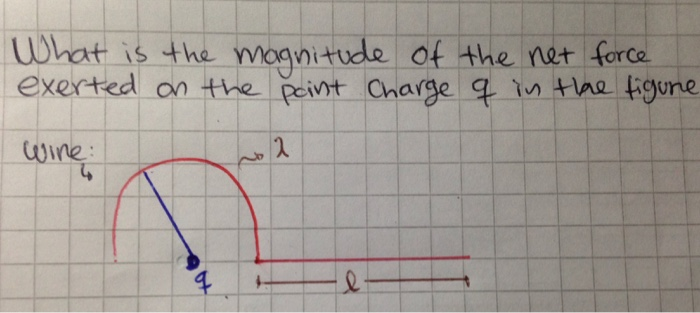 What is the magnitude of the net force
exerted on the point charge q in the figure
wire:
λ
q
l